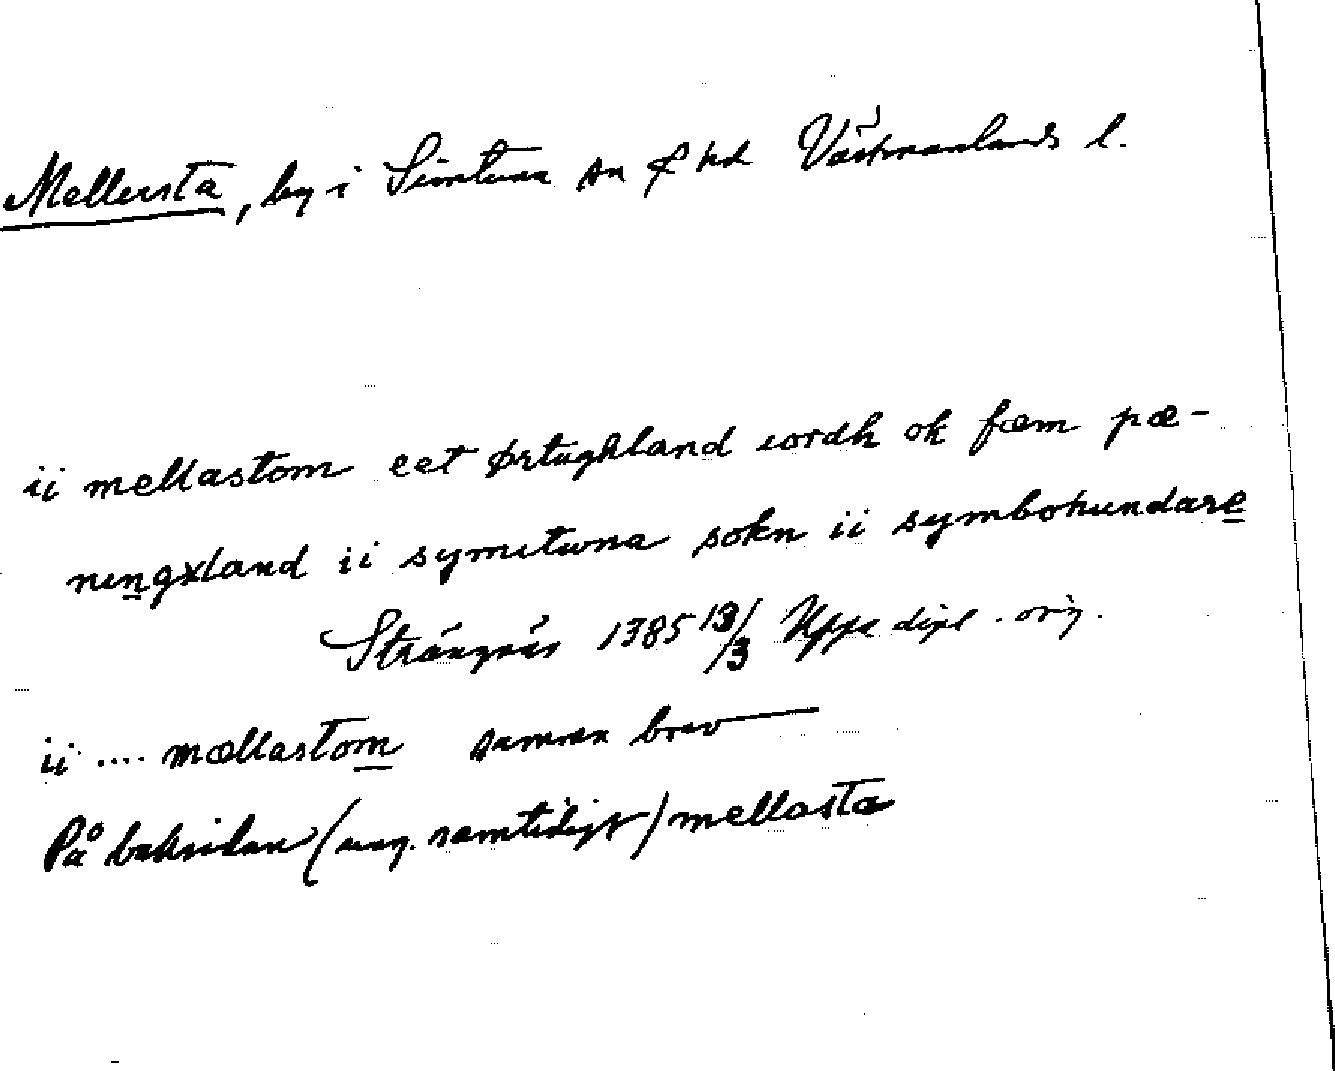 Mellersta, by i Simtuna sn & hd Västmanlands l.
ii mellastom eet ørtughland iordh ok fæm pæ-
ningxland ii symituna sokn ii symbohundare
Strängnäs 1385 13/3 Upps dipl. orig.
ii .... mællastom samma brev
På baksidan (ung. samtidigt) mellasta